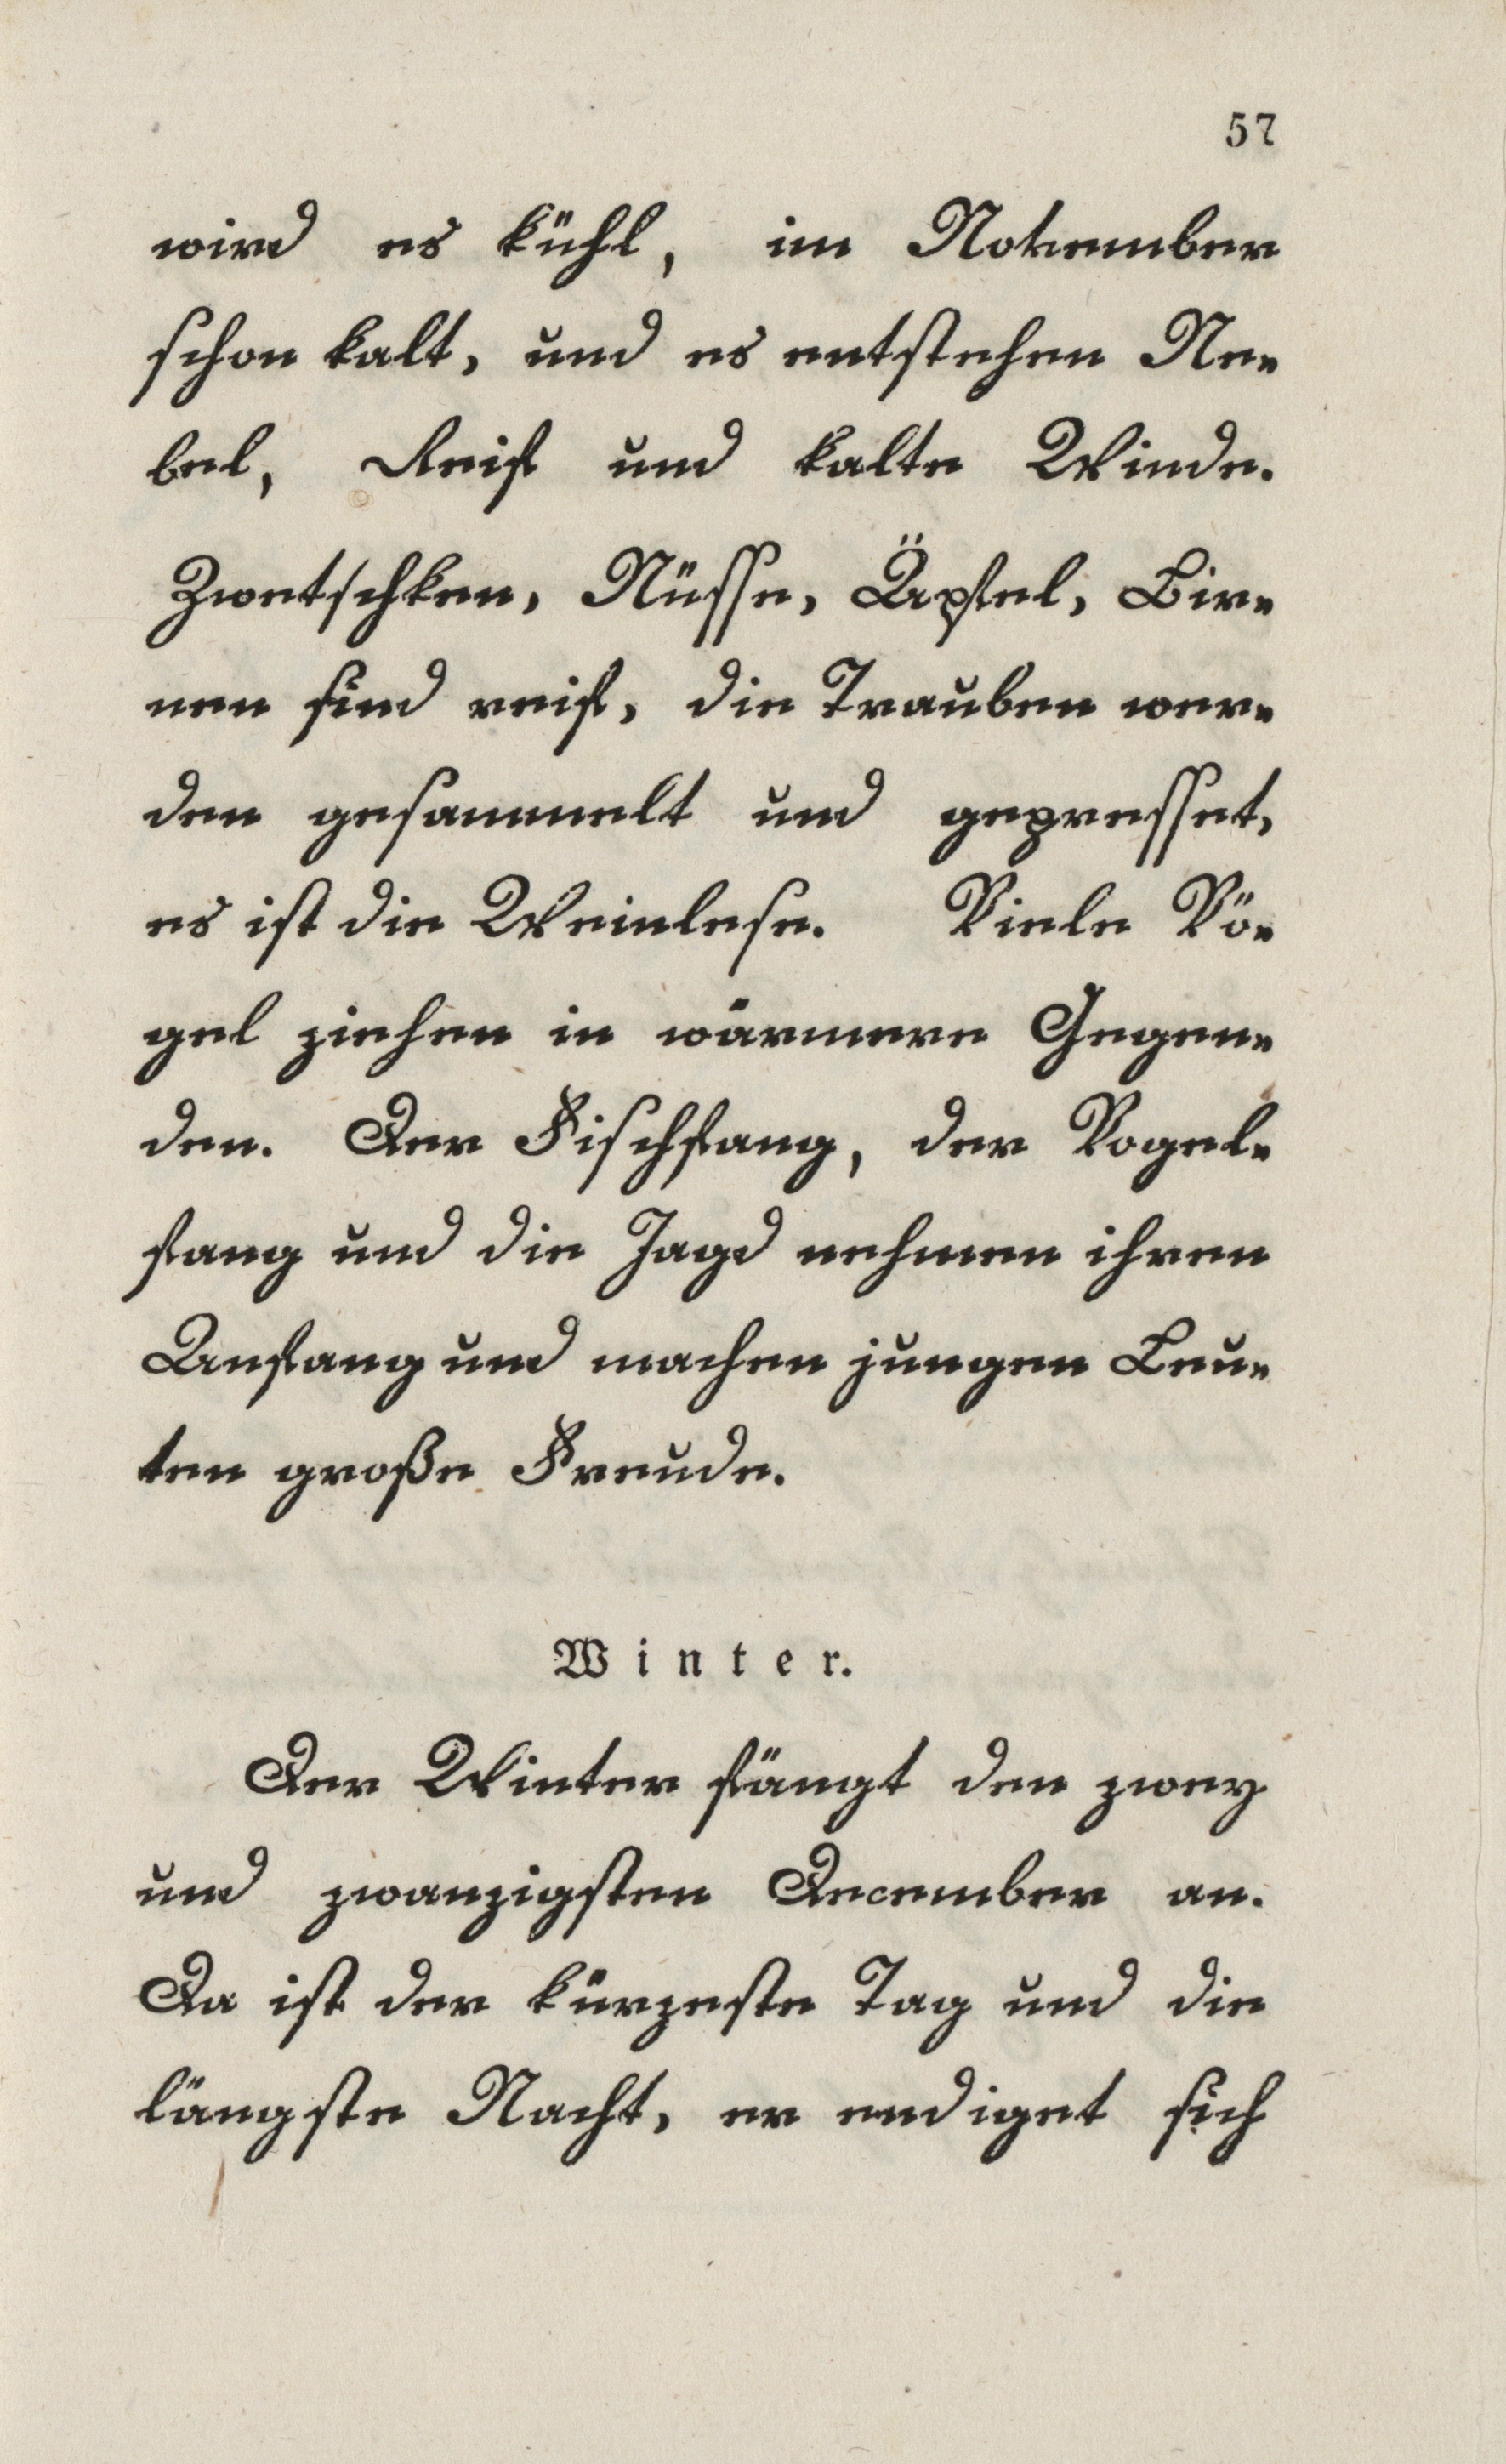 57
wird es kühl, im November
schon kalt, und es entstehen Ne-
bel, Reif und kalte Winde.
Zwetschken, Nüsse, Äpfel, Bir-
nen sind reif, die Trauben wer-
den gesammelt und gepresset,
es ist die Weinlese. Viele Vö-
gel ziehen in wärmere Gegen-
den. Der Fischfang, der Vogel-
fang und die Jagd nehmen ihren
Anfang und machen jungen Leu-
ten große Freude.
Winter.
Der Winter fängt den zwey
und zwanzigsten December an.
Da ist der kürzeste Tag und die
längste Nacht, er endiget sich